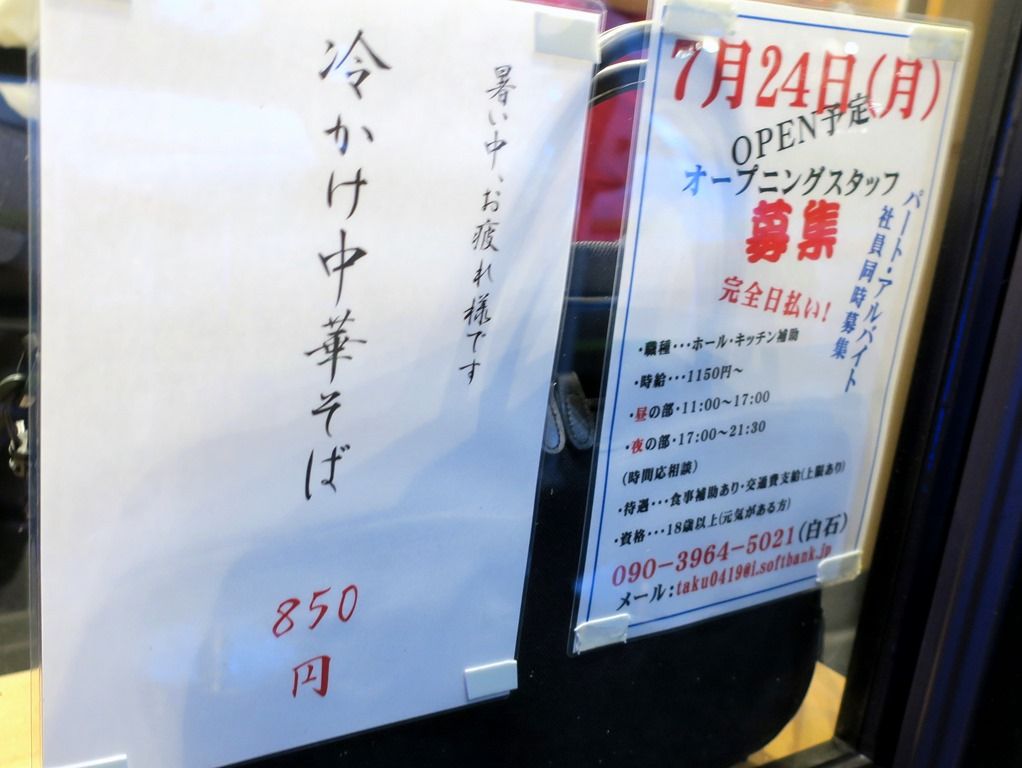 暑い中、お疲れ様です
冷かけ中華そば
850
円
7月24日(月)
OPEN予定
オープニングスタッフ
募集
パート・アルバイト
社員同時募集
完全日払い!
・職種・・・ホール・キッチン補助
・時給・・・1150円～
・昼の部・11:00～17:00
・夜の部・17:00～21:30
(時間応相談)
・待遇・・・食事補助あり・交通費支給(上限あり)
・資格・・・18歳以上(元気がある方)
090-3964-5021(白石)
メール:taku0419@i.softbank.jp